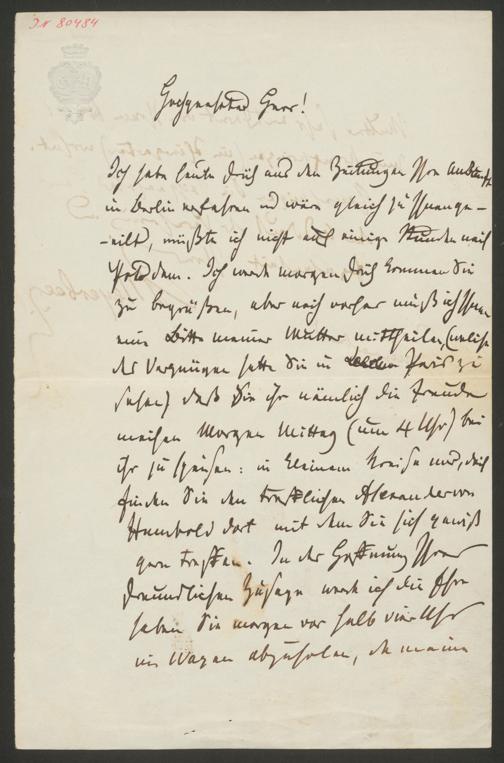 JN 80484
Hochgeehrter Herr!
Ich habe heute früh aus den Zeitungen Ihre Ankunft
in Berlin erfahren und wäre gleich zu Ihnen ge-
-eilt, müßte ich nicht auf einige Stunden nach
Potsdam. Ich werde morgen früh kommen Sie
zu begrüßen, aber noch vorher muß ich Ihnen
eine Bitte meiner Mutter mittheilen, (welche
das Vergnügen hatte Sie in Paris zu
sehen) daß Sie ihr nämlich die Freude
machen Morgen Mittag (um 4 Uhr) bei
ihr zu speisen: in kleinem Kreise nur, doch
finden Sie den trefflichen Alexander von
Humbold dort mit dem Sie sich gewiß
gern treffen. In der Hoffnung Ihrer
freundlichen Zusage werde ich die Ehre
haben Sie morgen vor halb vier Uhr
im Wagen abzuholen, da meine